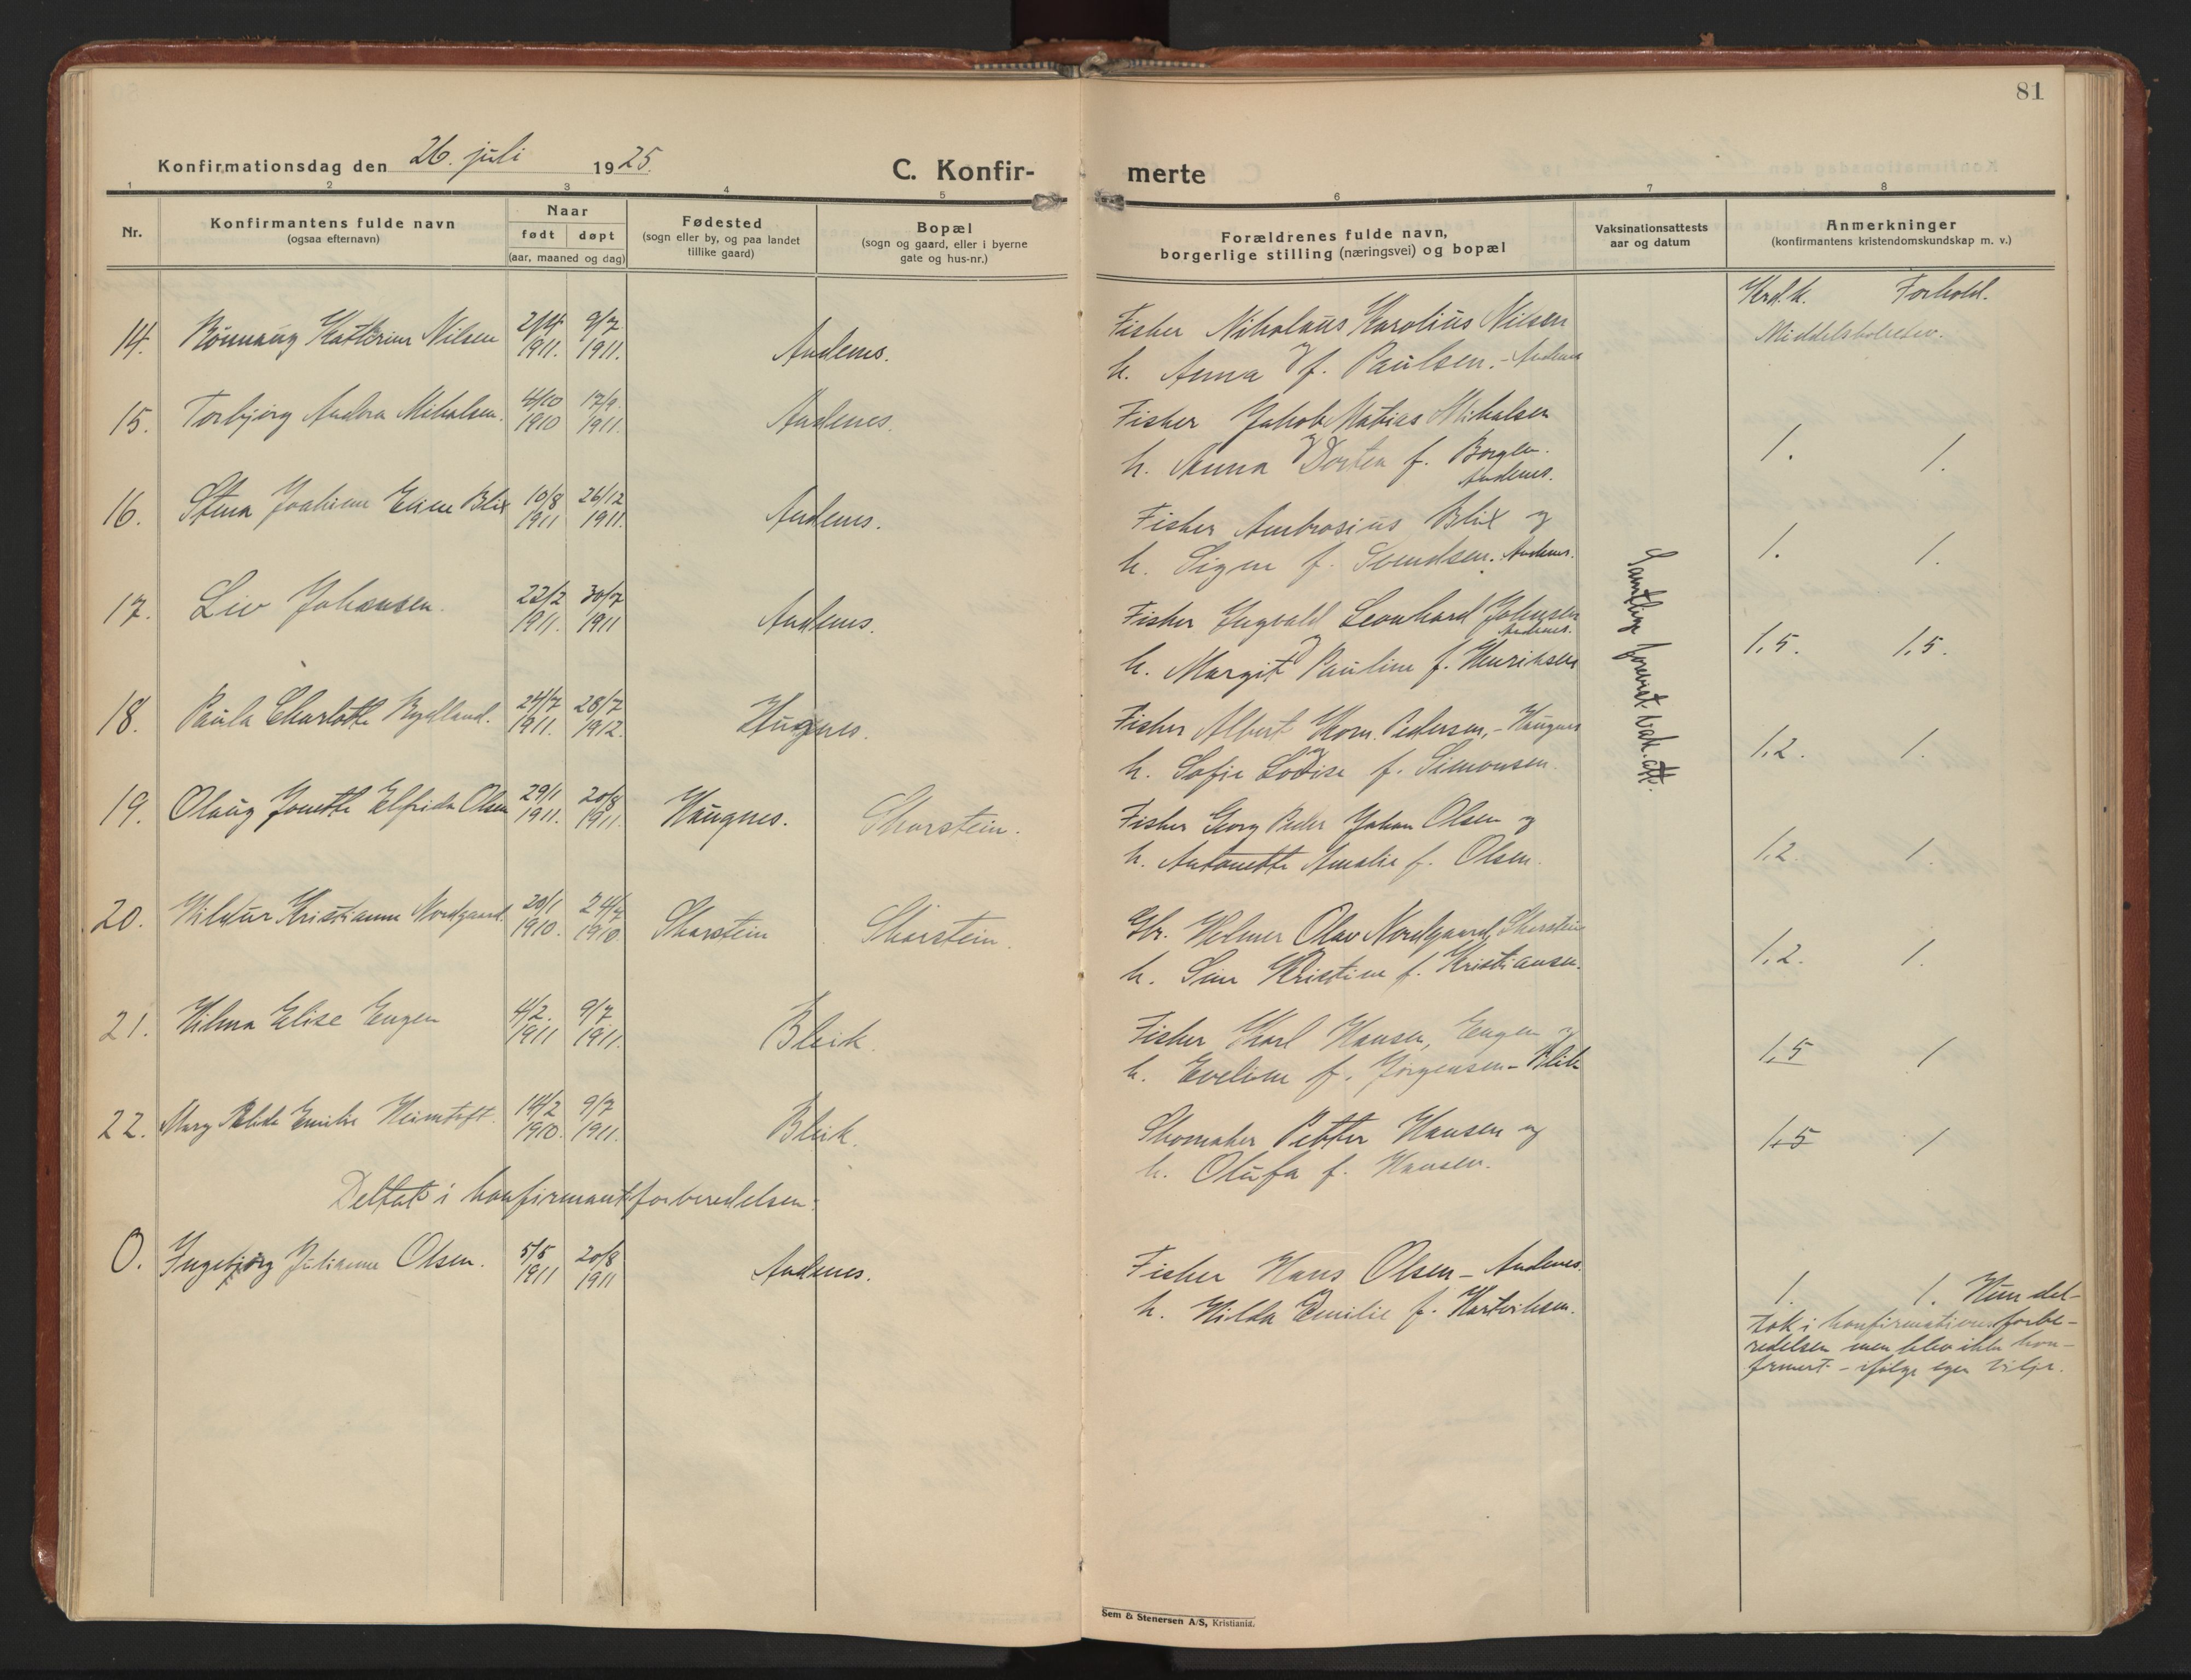 81
Konfirmationsdag den 26. juli 1925.
C. Konfir- merte
1 2 3 4 5 6 7 8
Nr.
Konfirmantens fulde navn
(ogsaa efternavn)
Naar
født døpt
(aar, maaned og dag)
Fødested
(sogn eller by, og paa landet
tillike gaard)
Bopæl
(sogn og gaard, eller i byerne
gate og hus-nr.)
Forældrenes fulde navn,
borgerlige stilling (næringsvei) og bopæl
Vaksinationsattests
aar og datum
Anmerkninger
(konfirmantens kristendomskundskap m. v.)
Krd.k. Forhold.
14. Rønnaug Katherine Nilsen 2/4 9/7 Andenes. Fisker Nikolaus Karolius Nilsen og Middelskoleelev.
1911. 1911. h. Anna f. Paulsen. - Andenes
15. Torbjørg Andrea Mikalsen. 4/10 17/9 Andenes. Fisker Jakob Matias Mikalsen og
1910 1911. h. Anna Dortea f. Borgen. 1. 1.
Andenes.
16. Stina Joakime Eline Blix 10/8 26/12 Andenes. Fisker Ambrosius Blix og
1911 1911. h. Signe f. Svendsen. Andenes. 1. 1.
17. Liv Johansen. 22/2 30/7 Andenes. Fisker Ingvald Leonhard Johansen
1911. 1911 Andenes. og
h. Margit Pauline f. Henriksen 1,5. 1,5.
Samtlige forevist vak.att.
18. Paula Charlotte Rydland. 24/7 28/7 Haugnes. Fisker Albert Korn. Pedersen, - Haugnes og
1911. 1912. h. Sofie Lovise f. Simonsen. 1,2. 1.
19. Olaug Jonette Elfrida Olsen 29/1 20/8 Haugnes. Skarstein. Fisker Georg Peder Johan Olsen og
1911. 1911. h. Antonette Amalie f. Olsen. 1,2. 1.
20. Hildur Kristianne Nordgaard. 20/1 24/7 Skarstein Skarstein. Gbr. Helmer Olav Nordgaard, Skarstein
1910. 1910 h. Sine Kristine f. Kristiansen. 1,2. 1.
21. Hilma Elise Engen 4/2. 9/7 Bleik. Fisker Karl Hansen, Engen og
1911 1911. h. Eveline f. Jørgensen - Bleik 1,5 1
22. Mary Emilie Heimtoft. 14/2 9/7 Bleik. Skomaker Petter Hansen og
1910. 1911. h. Olufa f. Hansen. 1,5 1
Deltat i konfirmantforberedelsen:
0. Ingebjørg Julianne Olsen. 5/5 20/8 Andenes. Fisker Hans Olsen - Andenes. og
1911 1911 h. Hilda Emilie f. Hartviksen. 1. 1. Hun del-
tok i konfirmationsforbe-
redelsen men blev ikke kon-
firmert - ifølge egen vilje.
Sem & Stenersen A/S, Kristiania.